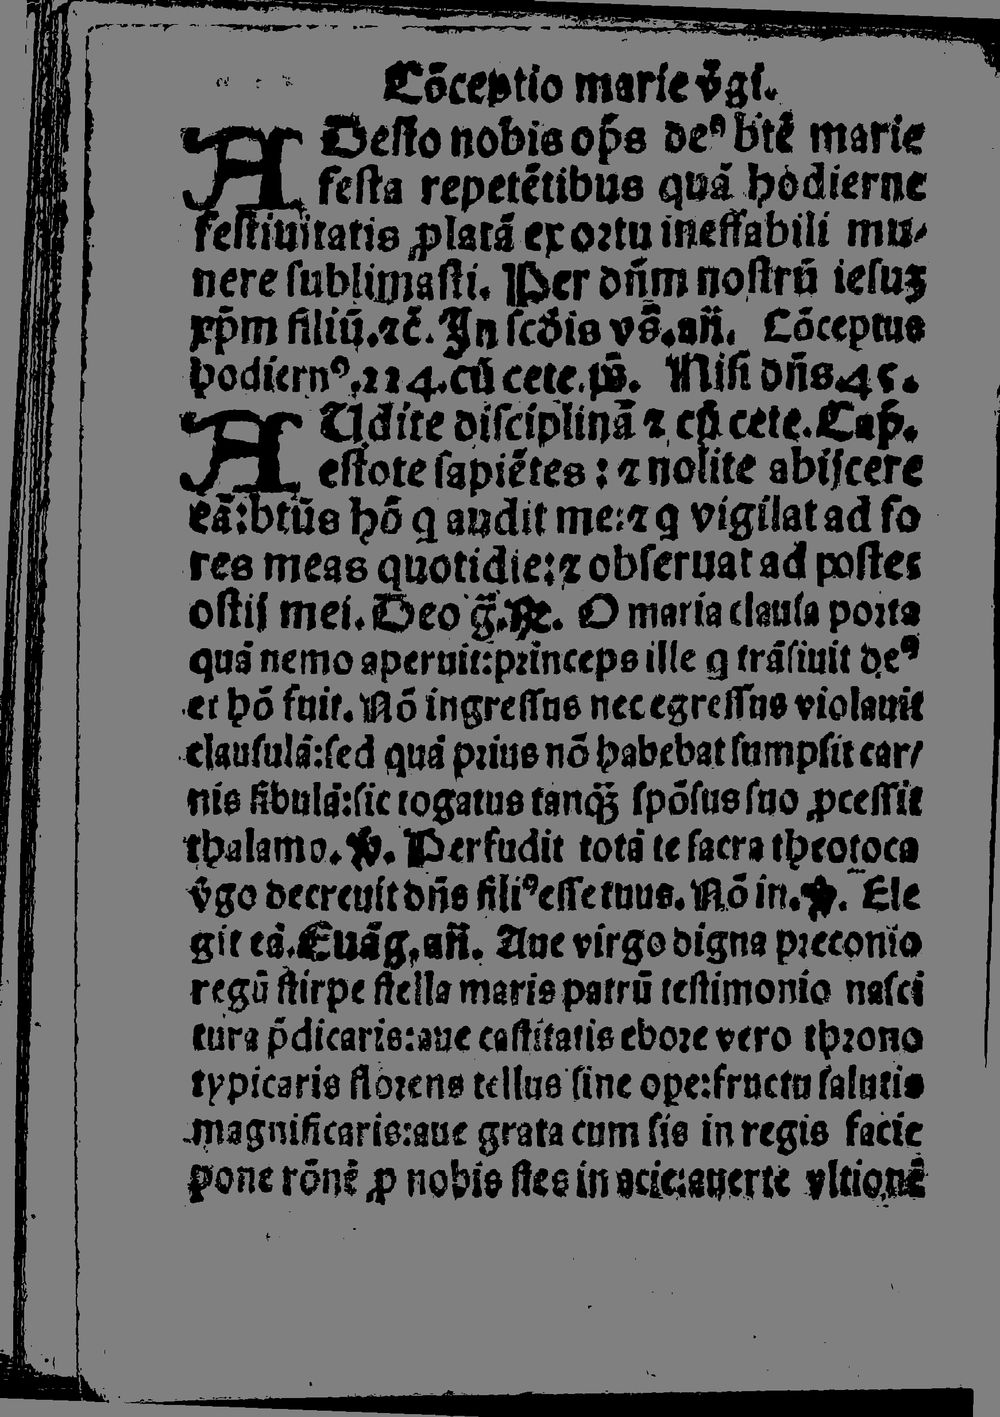 Cōceptio marie v̄gī.
ADesto nobis op̄s deꝰ btē marie
festa repetētibus quā hodierne
festiuitatis ꝓlatā ex ortu ineffabili mu-
nere sublimasti. Per dn̄m nostrū iesuʒ
xp̄m filiū.⁊c̄. In scd̄is vs̄.an̄. Cōceptus
hodiernꝰ.114.cū cete.ps̄. Nisi dn̄s.45.
AUdite disciplinā ⁊ cū cete. Cap̄.
estote sapiētes : ⁊ nolite abijcere
eā:btūs hō q audit me:⁊ q vigilat ad fo
res meas quotidie:⁊ obseruat ad postes
ostij mei. Deo ḡ.℞. O maria clausa porta
quā nemo aperuit:princeps ille q trāsiuit deꝰ
et hō fuit. Nō ingressus nec egressus violauit
clausulā:sed quā prius nō habebat sumpsit car/
nis fibulā:sic togatus tanq̄ʒ spōsus suo ꝓcessit
thalamo.℣. Perfudit totā te sacra theotoca
v̄go decreuit dn̄s filiꝰ esse tuus. Nō in.℣. Ele
git eā.Euāg.an̄. Aue virgo digna preconio
regū stirpe stella maris patrū testimonio nasci
tura p̄dicaris:aue castitatis ebore vero throno
typicaris florens tellus sine ope:fructu salutis
magnificaris:aue grata cum sis in regis facie
pone rōnē ꝓ nobis stes in acie:auerte vltionē